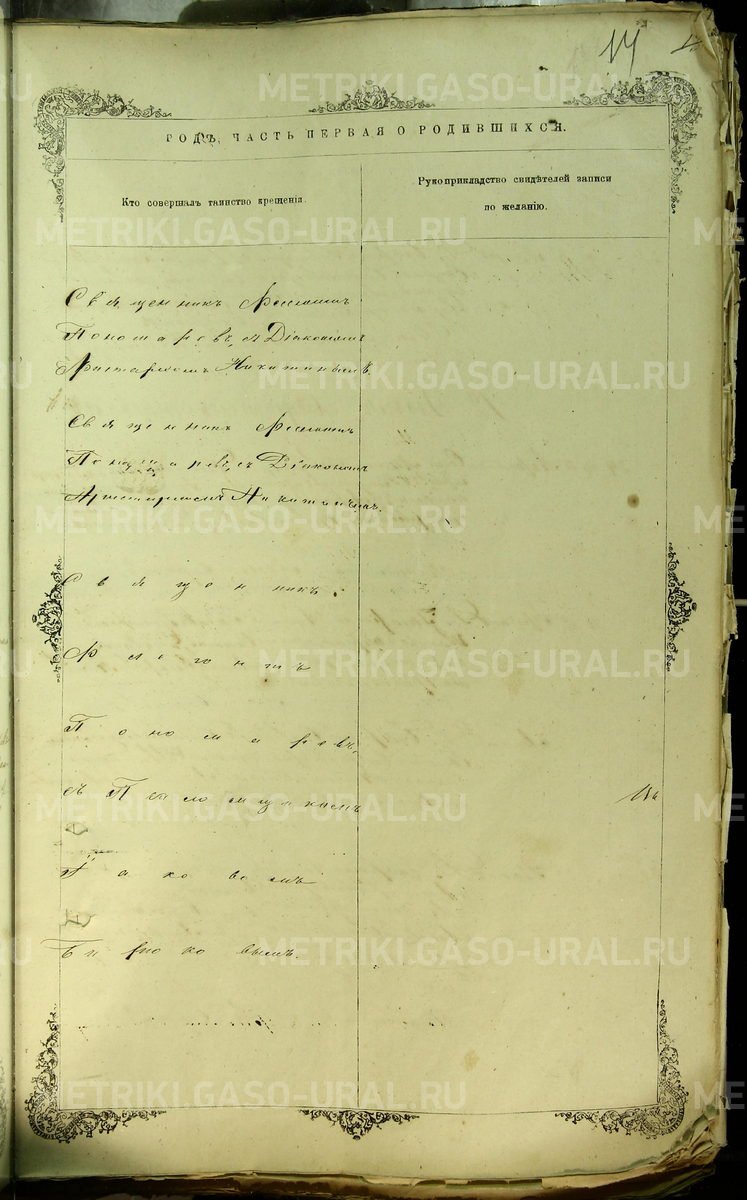 14
ГОДЪ, ЧАСТЬ ПЕРВАЯ О РОДИВШИХСЯ.
Кто совершалъ таинство крещенія.
Рукоприкладство свидѣтелей записи
по желанію.
Священникъ
Пономаревъ, съ Діакономъ
Аристархомъ Никитинымъ.
Священникъ
Пономаревъ, съ Діакономъ
Аристархомъ Никитинымъ.
Священникъ
Пономаревъ,
съ Псаломщикомъ
Іаковомъ
Бирюковымъ.
METRIKI.GASO-URAL.RU